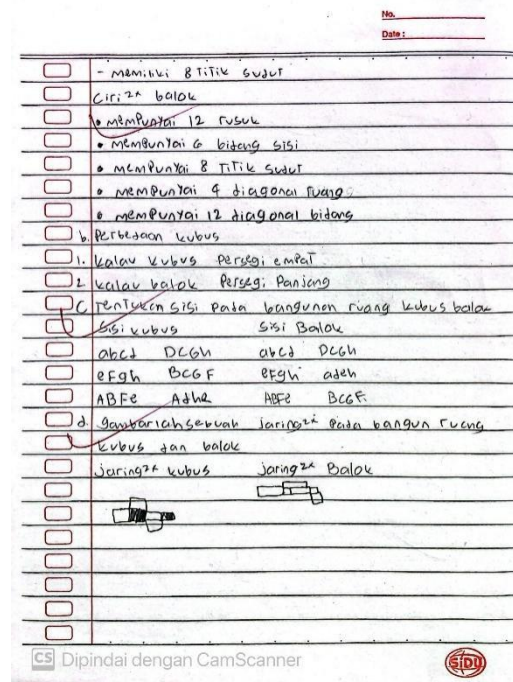 No.
Date:
- Memiliki 8 TiTik sudut
Ciri 2x balok
• memPunyai 12 rusuk
• memPunyai 6 bidang sisi
• memPunyai 8 TiTik sudut
• memPunyai 4 diagonal ruang
• memPunyai 12 diagonal bidang
b. Perbedaan kubus
1. kalau kubus Persegi emPat
2 kalau balok Persegi Panjang
C. Tentukan sisi Pada bangunan ruang kubus balok
Sisi kubus Sisi Balok
abcd DCGh abcd DCGh
eFgh BCGF eFgh adeh
ABFe Adhe ABFe BCGF
d. gambarlah sebuah jaring2x Pada bangun ruang
kubus dan balok
jaring2x kubus jaring2x Balok
CS Dipindai dengan CamScanner
SiDU